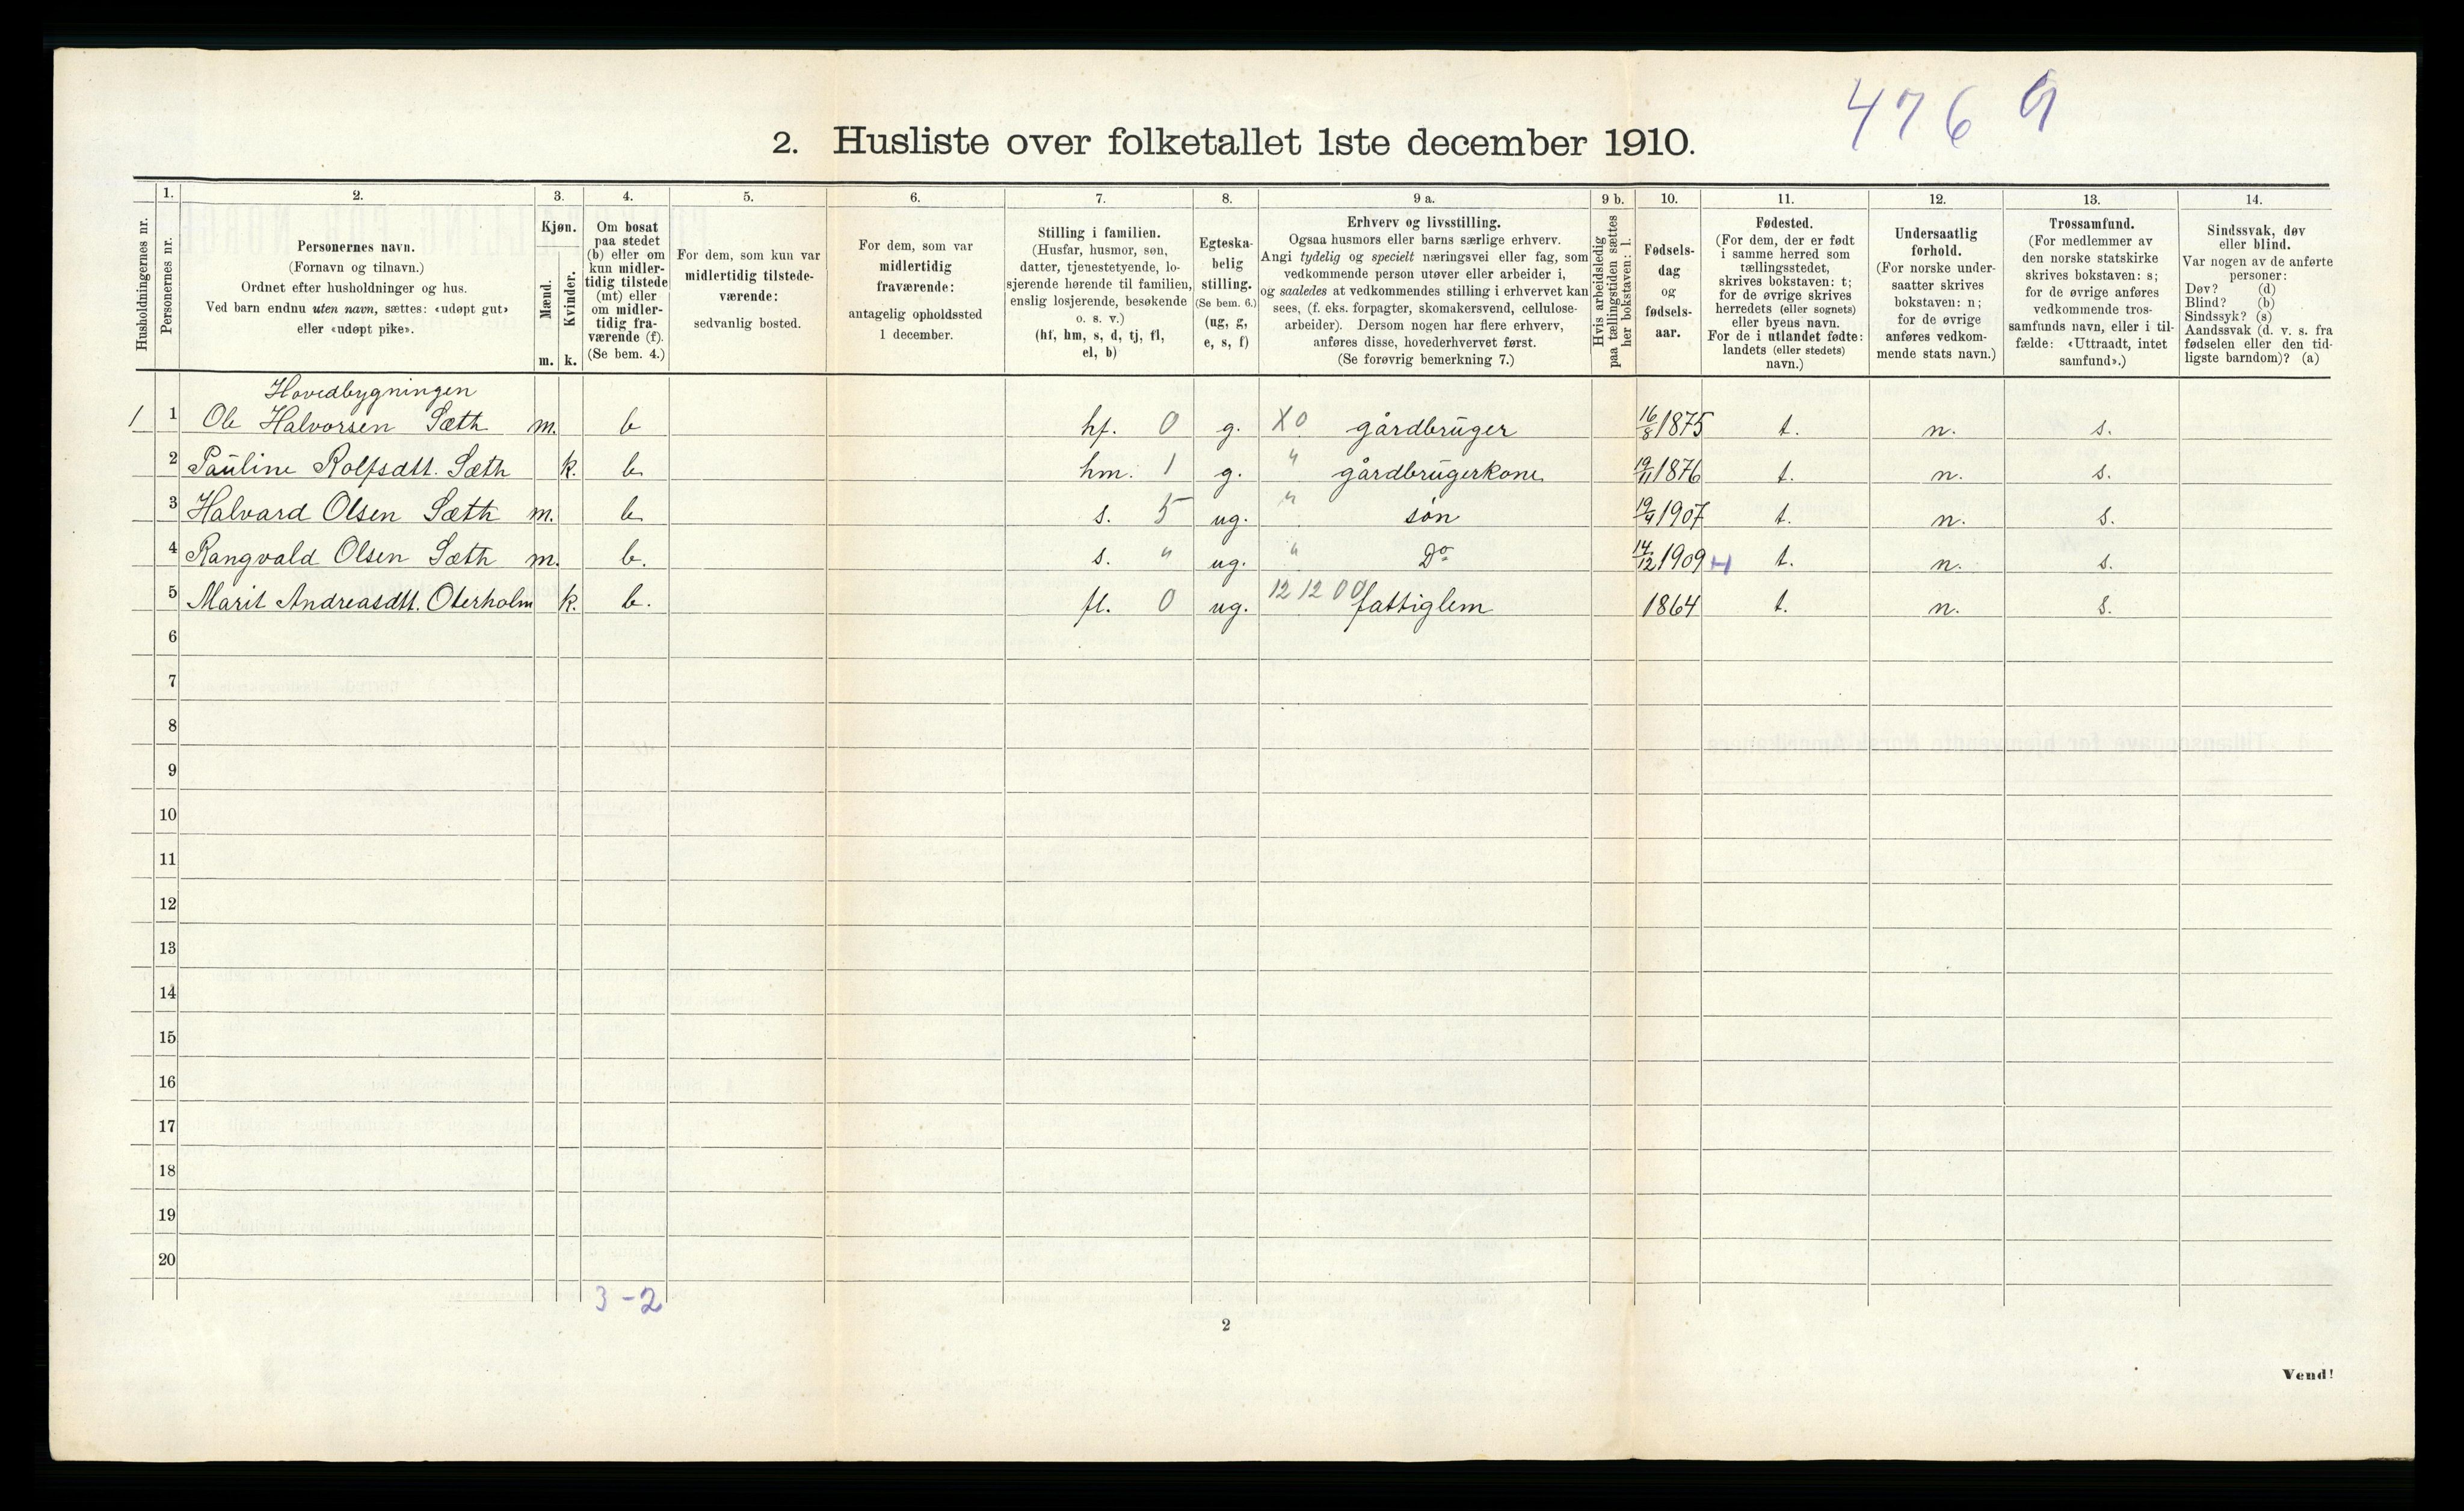 4769
2. Husliste over folketallet 1ste december 1910.
Husholdningernes nr.
1.
Personernes nr.
2.
Personernes navn.
(Fornavn og tilnavn.)
Ordnet efter husholdninger og hus.
Ved barn endnu uten navn, sættes: «udøpt gut»
eller «udøpt pike».
3.
Kjøn.
Mænd.
Kvinder.
m. k.
4.
Om bosat
paa stedet
(b) eller om
kun midler-
tidig tilstede
(mt) eller
om midler-
tidig fra-
værende (f).
(Se bem. 4.)
5.
For dem, som kun var
midlertidig tilstede-
værende:
sedvanlig bosted.
6.
For dem, som var
midlertidig
fraværende:
antagelig opholdssted
1 december.
7.
Stilling i familien.
(Husfar, husmor, søn,
datter, tjenestetyende, lo-
sjerende hørende til familien,
enslig losjerende, besøkende
o. s. v.)
(hf, hm, s, d, tj, fl,
el, b)
8.
Egteska-
belig
stilling.
(Se bem. 6.)
(ug, g,
e, s, f)
9 a.
Erhverv og livsstilling.
Ogsaa husmors eller barns særlige erhverv.
Angi tydelig og specielt næringsvei eller fag, som
vedkommende person utøver eller arbeider i,
og saaledes at vedkommendes stilling i erhvervet kan
sees, (f. eks. forpagter, skomakersvend, cellulose-
arbeider). Dersom nogen har flere erhverv,
anføres disse, hovederhvervet først.
(Se forøvrig bemerkning 7.)
9 b.
Hvis arbeidsledig
paa tællingstiden sættes
her bokstaven: l.
10.
Fødsels-
dag
og
fødsels-
aar.
11.
Fødested.
(For dem, der er født
i samme herred som
tællingsstedet,
skrives bokstaven: t;
for de øvrige skrives
herredets (eller sognets)
eller byens navn.
For de i utlandet fødte:
landets (eller stedets)
navn.)
12.
Undersaatlig
forhold.
(For norske under-
saatter skrives
bokstaven: n;
for de øvrige
anføres vedkom-
mende stats navn.)
13.
Trossamfund.
(For medlemmer av
den norske statskirke
skrives bokstaven: s;
for de øvrige anføres
vedkommende tros-
samfunds navn, eller i til-
fælde: «Uttraadt, intet
samfund».)
14.
Sindssvak, døv
eller blind.
Var nogen av de anførte
personer:
Døv? (d)
Blind? (b)
Sindssyk? (s)
Aandssvak (d. v. s. fra
fødselen eller den tid-
ligste barndom)? (a)
Hovedbygningen
1 1 Ole Halvorsen Sæth m. b hf. 0 g. X0 gårdbruger 16/8 1875 t. n. s.
2 Pauline Rolfsdtt. Sæth k. b hm. 1 g. " gårdbrugerkone 19/11 1876 t. n. s.
3 Halvard Olsen Sæth m. b s. 5 ug. " søn 19/4 1907 t. n. s.
4 Rangvald Olsen Sæth m. b. s. " ug. " Do 14/12 1909 t. n. s.
5 Marit Andreasdtt. Oterholm k. b. fl. 0 ug. 12 12 00 fattiglem 1864 t. n. s.
6
7
8
9
10
11
12
13
14
15
16
17
18
19
20
3-2
2
Vend!